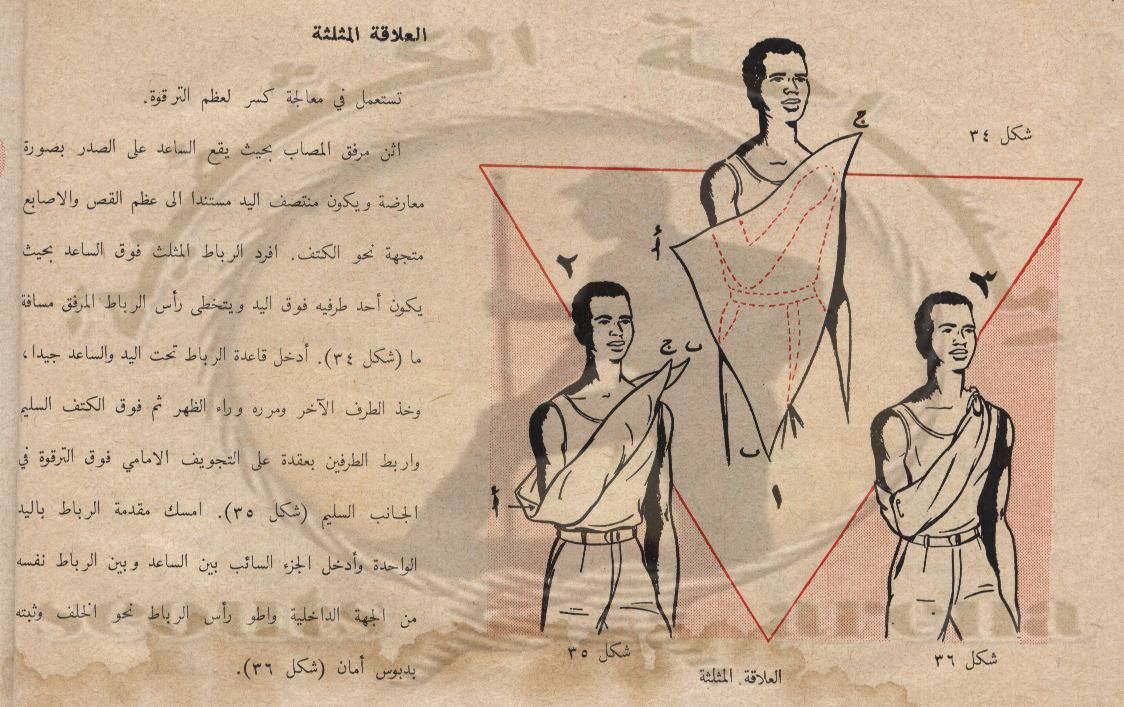 العلاقة المثلثة
تستعمل في معالجة كسر لعظم الترقوة.
اثن مرفق المصاب بحيث يقع الساعد على الصدر بصورة
معارضة ويكون منتصف اليد مستندا الى عظم القص والاصابع
متجهة نحو الكتف. افرد الرباط المثلث فوق الساعد بحيث
يكون أحد طرفيه فوق اليد ويتخطى رأس الرباط المرفق مسافة
ما (شكل ٣٤). أدخل قاعدة الرباط تحت اليد والساعد جيدا،
وخذ الطرف الآخر ومرره وراء الظهر ثم فوق الكتف السليم
واربط الطرفين بعقدة على التجويف الامامي فوق الترقوة في
الجانب السليم (شكل ٣٥). امسك مقدمة الرباط باليد
الواحدة وأدخل الجزء السائب بين الساعد وبين الرباط نفسه
من الجهة الداخلية واطو رأس الرباط نحو الخلف وثبته
بدبوس أمان (شكل ٣٦).
شكل ٣٤
ج
أ
ب
١
٢
ج ب
أ
شكل ٣٥
٣
شكل ٣٦
العلاقة المثلثة